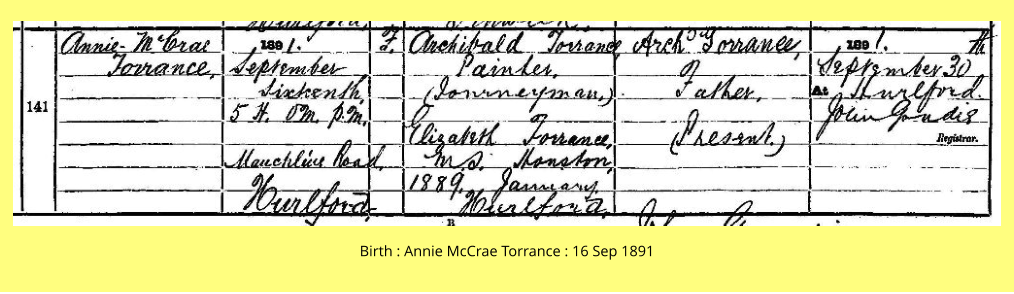 141
Annie McCrae
Torrance,
1891.
September
Sixteenth,
5 H. 0 M. P.M.
Mauchline Road,
Hurlford.
F.
Archibald Torrance,
Painter,
(Journeyman,)
Elizabeth Torrance,
M.S. Houston,
1889. January
Hurlford.
Archd Torrance,
Father,
(Present.)
1891.
September 30th
At Hurlford.
John
Registrar.
Birth : Annie McCrae Torrance : 16 Sep 1891